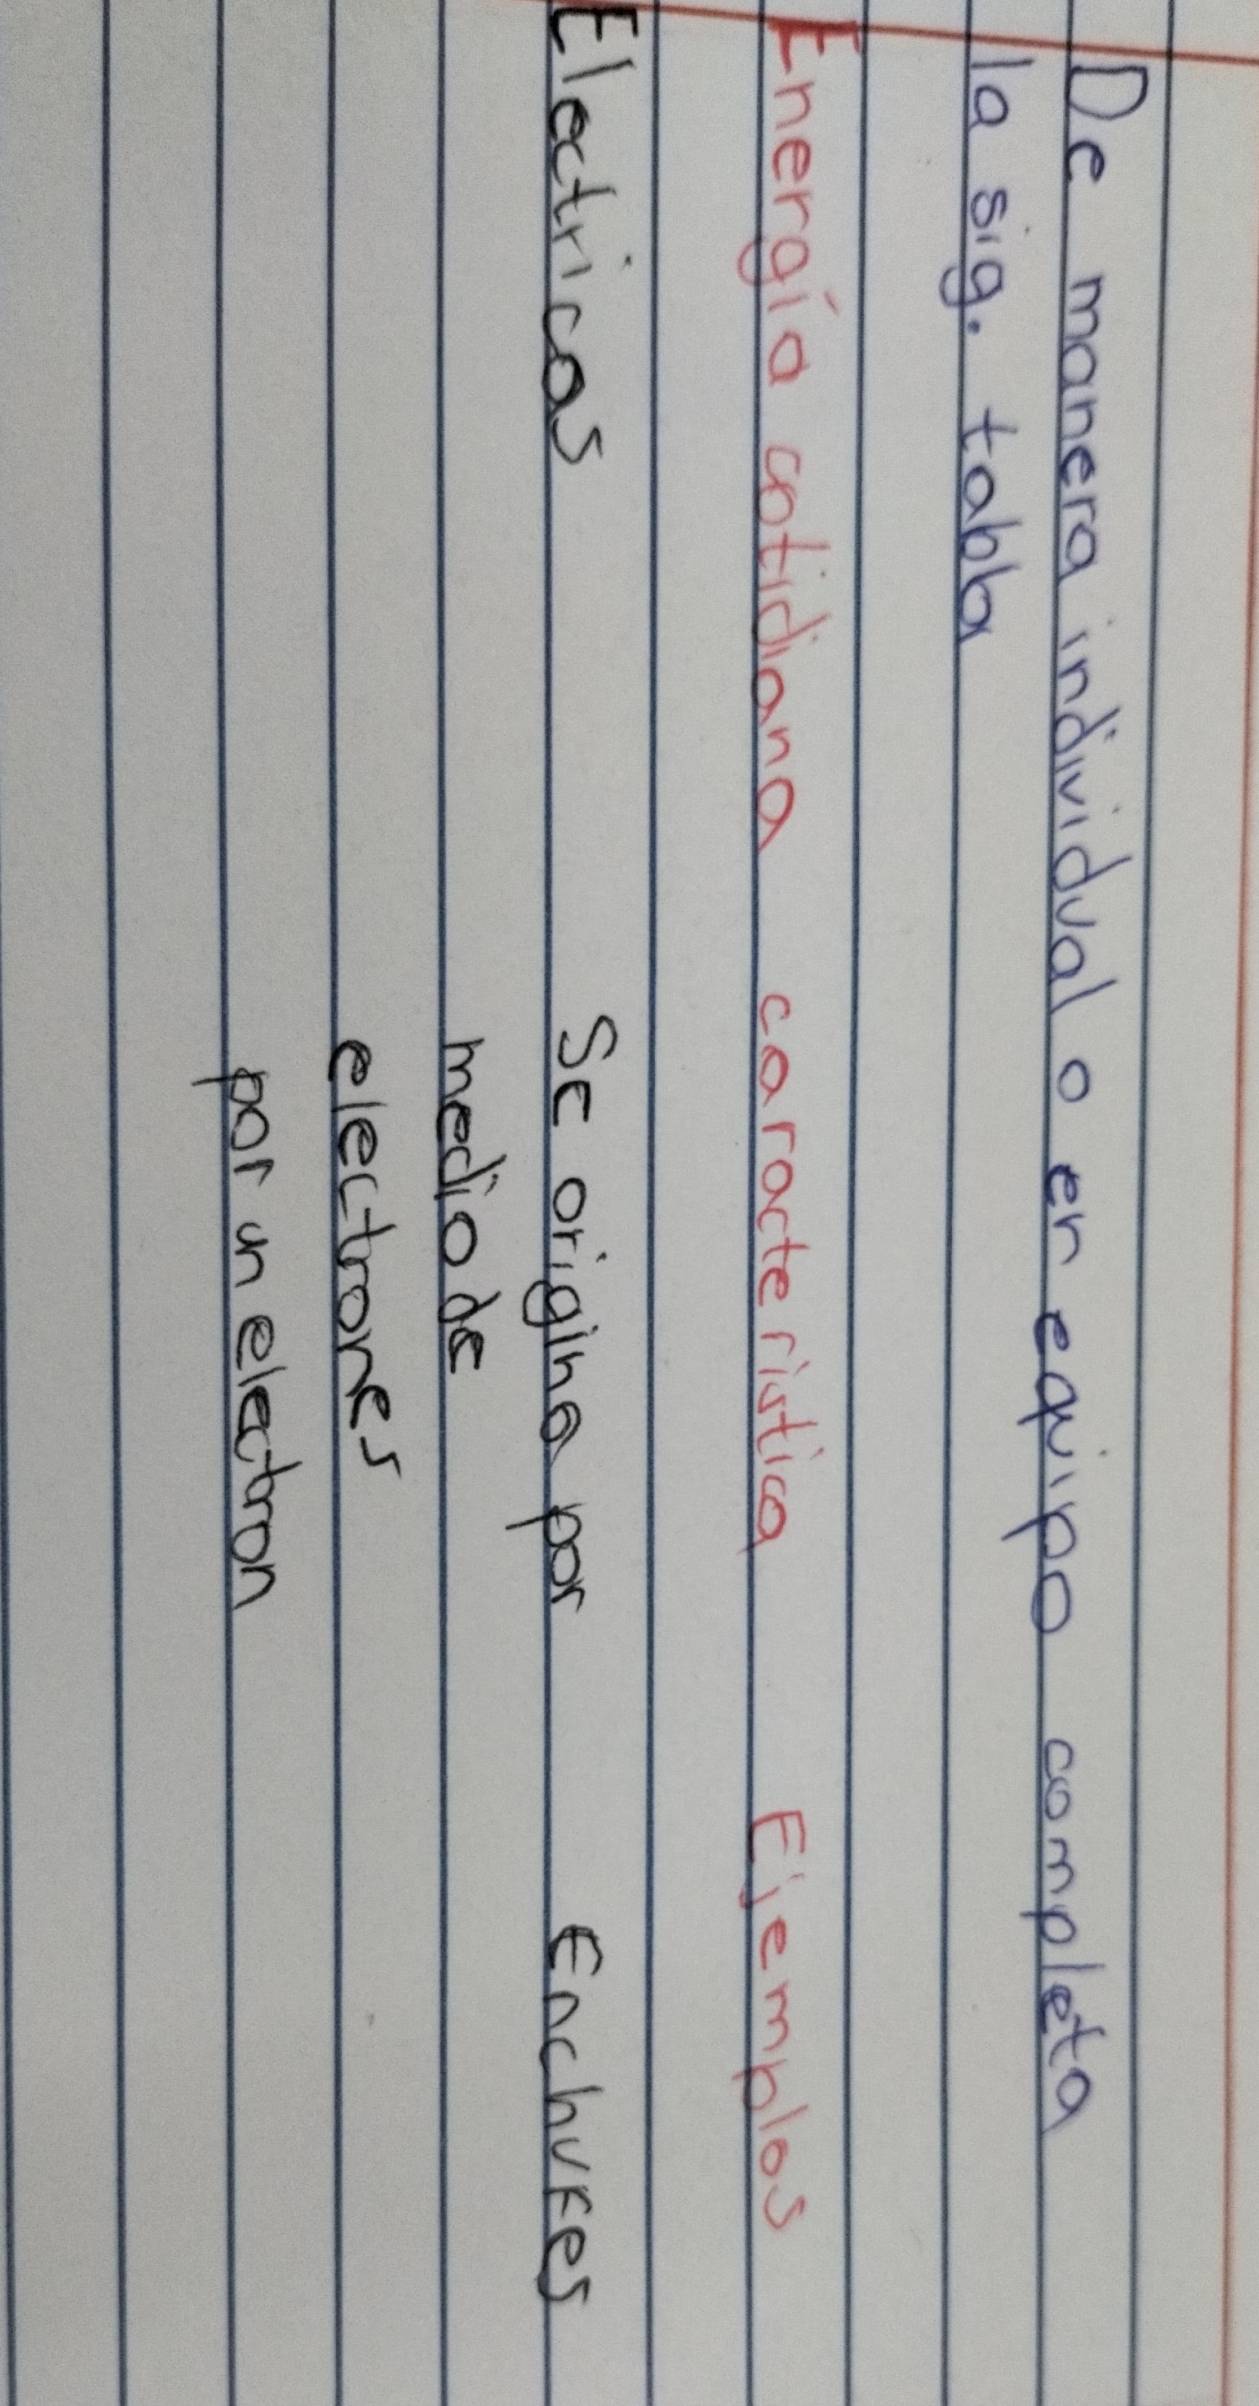 De manera individual o en equipo completa
la sig. tabla
Energía cotidiana caracteristica Ejemplos
Electricas Se origina por Enchufes
medio de
electrones
por un electron